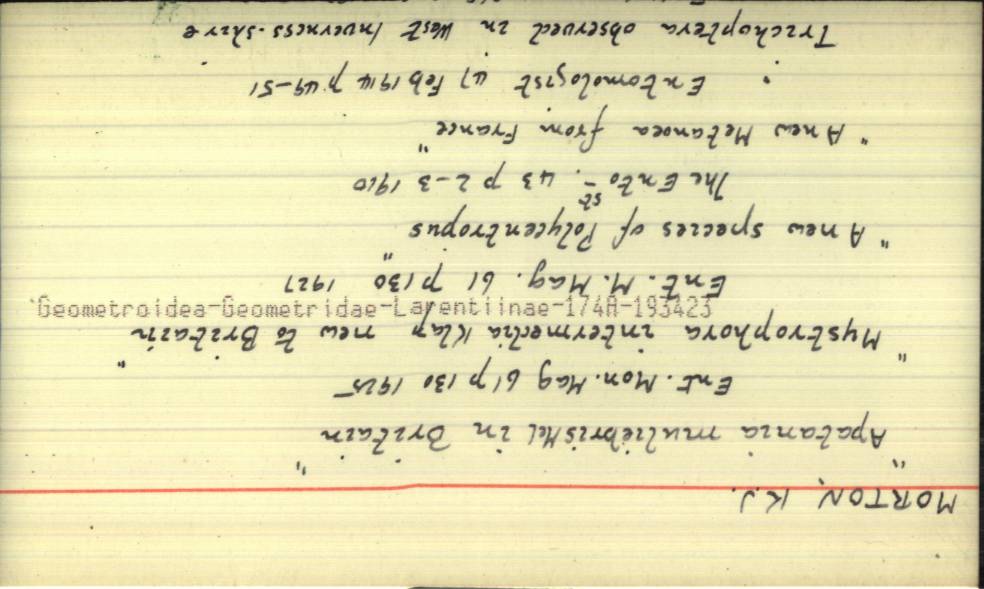 MORTON, K.J.
"Apatania muliebris McL in Britain"
Ent. Mon. Mag 61 p 130 1925
"Mystrophora intermedia Klap new to Britain"
Geometroidea-Geometridae-Larentiinae-174A-193423
Ent. M. Mag. 61 p 130 1927
"A new species of Polycentropus"
The Ento-st. 43 p 2-3 1910
"A new Metanoea from France"
Entomologist 47 Feb 1914 p 49-51
Trichoptera observed in West Inverness-shire